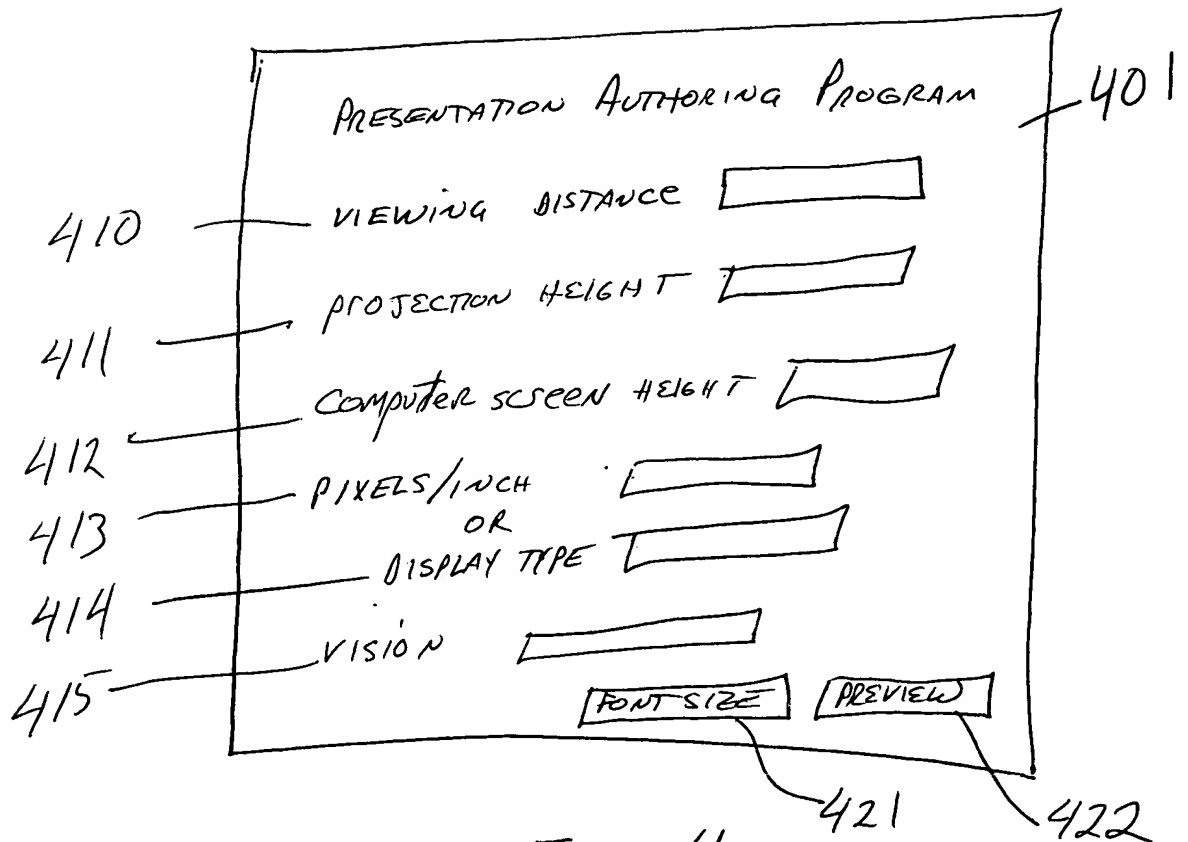 PRESENTATION AUTHORING PROGRAM
401
410 VIEWING DISTANCE
411 PROJECTION HEIGHT
412 COMPUTER SCREEN HEIGHT
413 PIXELS/INCH
OR
414 DISPLAY TYPE
415 VISION
FONT SIZE PREVIEW
421 422